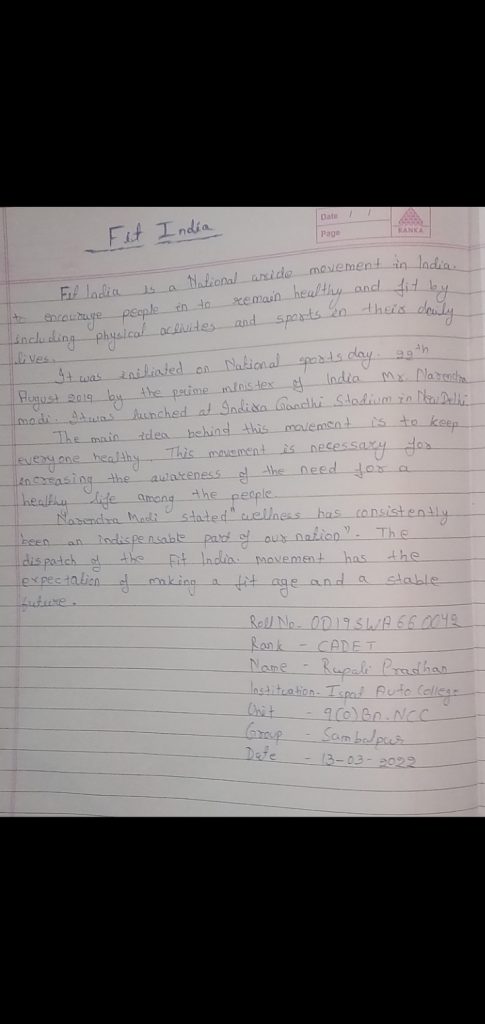 Date / /
Page
KANKA
Fit India
Fit India is a National wide movement in India.
to encourage people in to remain healthy and fit by
including physical activites and sports in their daily
lives.
It was initiated on National sports day. 29th
August 2019 by the prime minister of India Mr. Narendra
modi. It was lunched at Indira Gandhi Stadium in New Delhi.
The main idea behind this movement is to keep
everyone healthy. This movement is necessary for
increasing the awareness of the need for a
healthy life among the people.
Narendra Modi stated "wellness has consistently
been an indispensable part of our nation". The
dispatch of the Fit India. movement has the
expectation of making a fit age and a stable
future.
Roll No. OD19SWA660042
Rank - CADET
Name - Rupali Pradhan
Instituation- Ispat Auto College
Unit - 9(O)Bn.NCC
Group - Sambalpur
Date - 13-03-2022